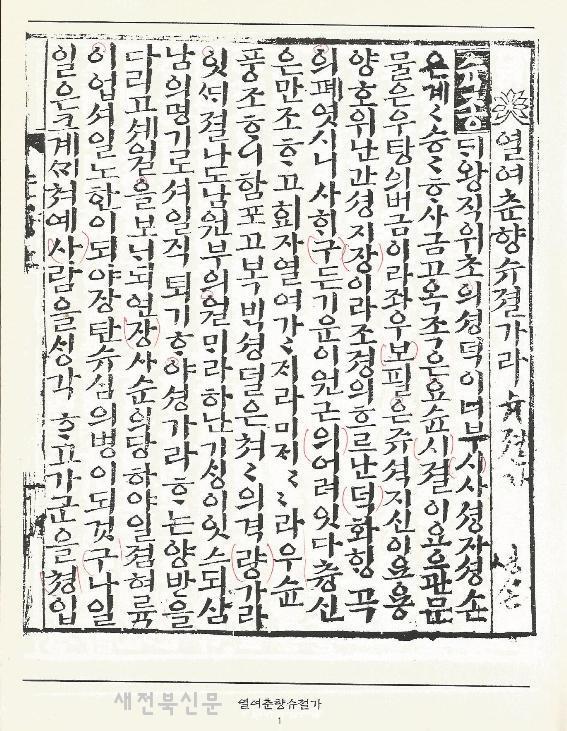 열여춘향슈졀가라
슉종ᄃᆡ왕직위초의셩덕이너부시사셩자셩손
은계〻승〻ᄒᆞ사금고옥족은요슌시졀이요으관문
물은우탕의버금이라좌우보필은쥬셕지신이요용
양호위난간셩지장이라조졍의흐르난덕화ᄒᆡᆼ곡
의폐엿시니사ᄒᆡ구든기운이원근의어려잇다츙신
은만조ᄒᆞ고회자열여가〻ᄌᆡ라미ᄌᆡ〻〻라우슌
풍조ᄒᆞ니함포고복ᄇᆡᆨ셩덜은쳐〻의격량가라
잇ᄯᆡ졀나도남원부의월ᄆᆡ라하난기ᄉᆡᆼ이잇스되삼
남의명기로셔일직퇴기ᄒᆞ야셩가라ᄒᆞ는양반을
다리고셰월을보ᄂᆡ되연장사순의당하야일졈혀륙
이업셔일노한이되야장탄슈심의병이되것구나일
일은크게ᄭᆡ쳐예사람을ᄉᆡᆼ각ᄒᆞ고가군을쳥입
새전북신문
열여춘향슈절가
1